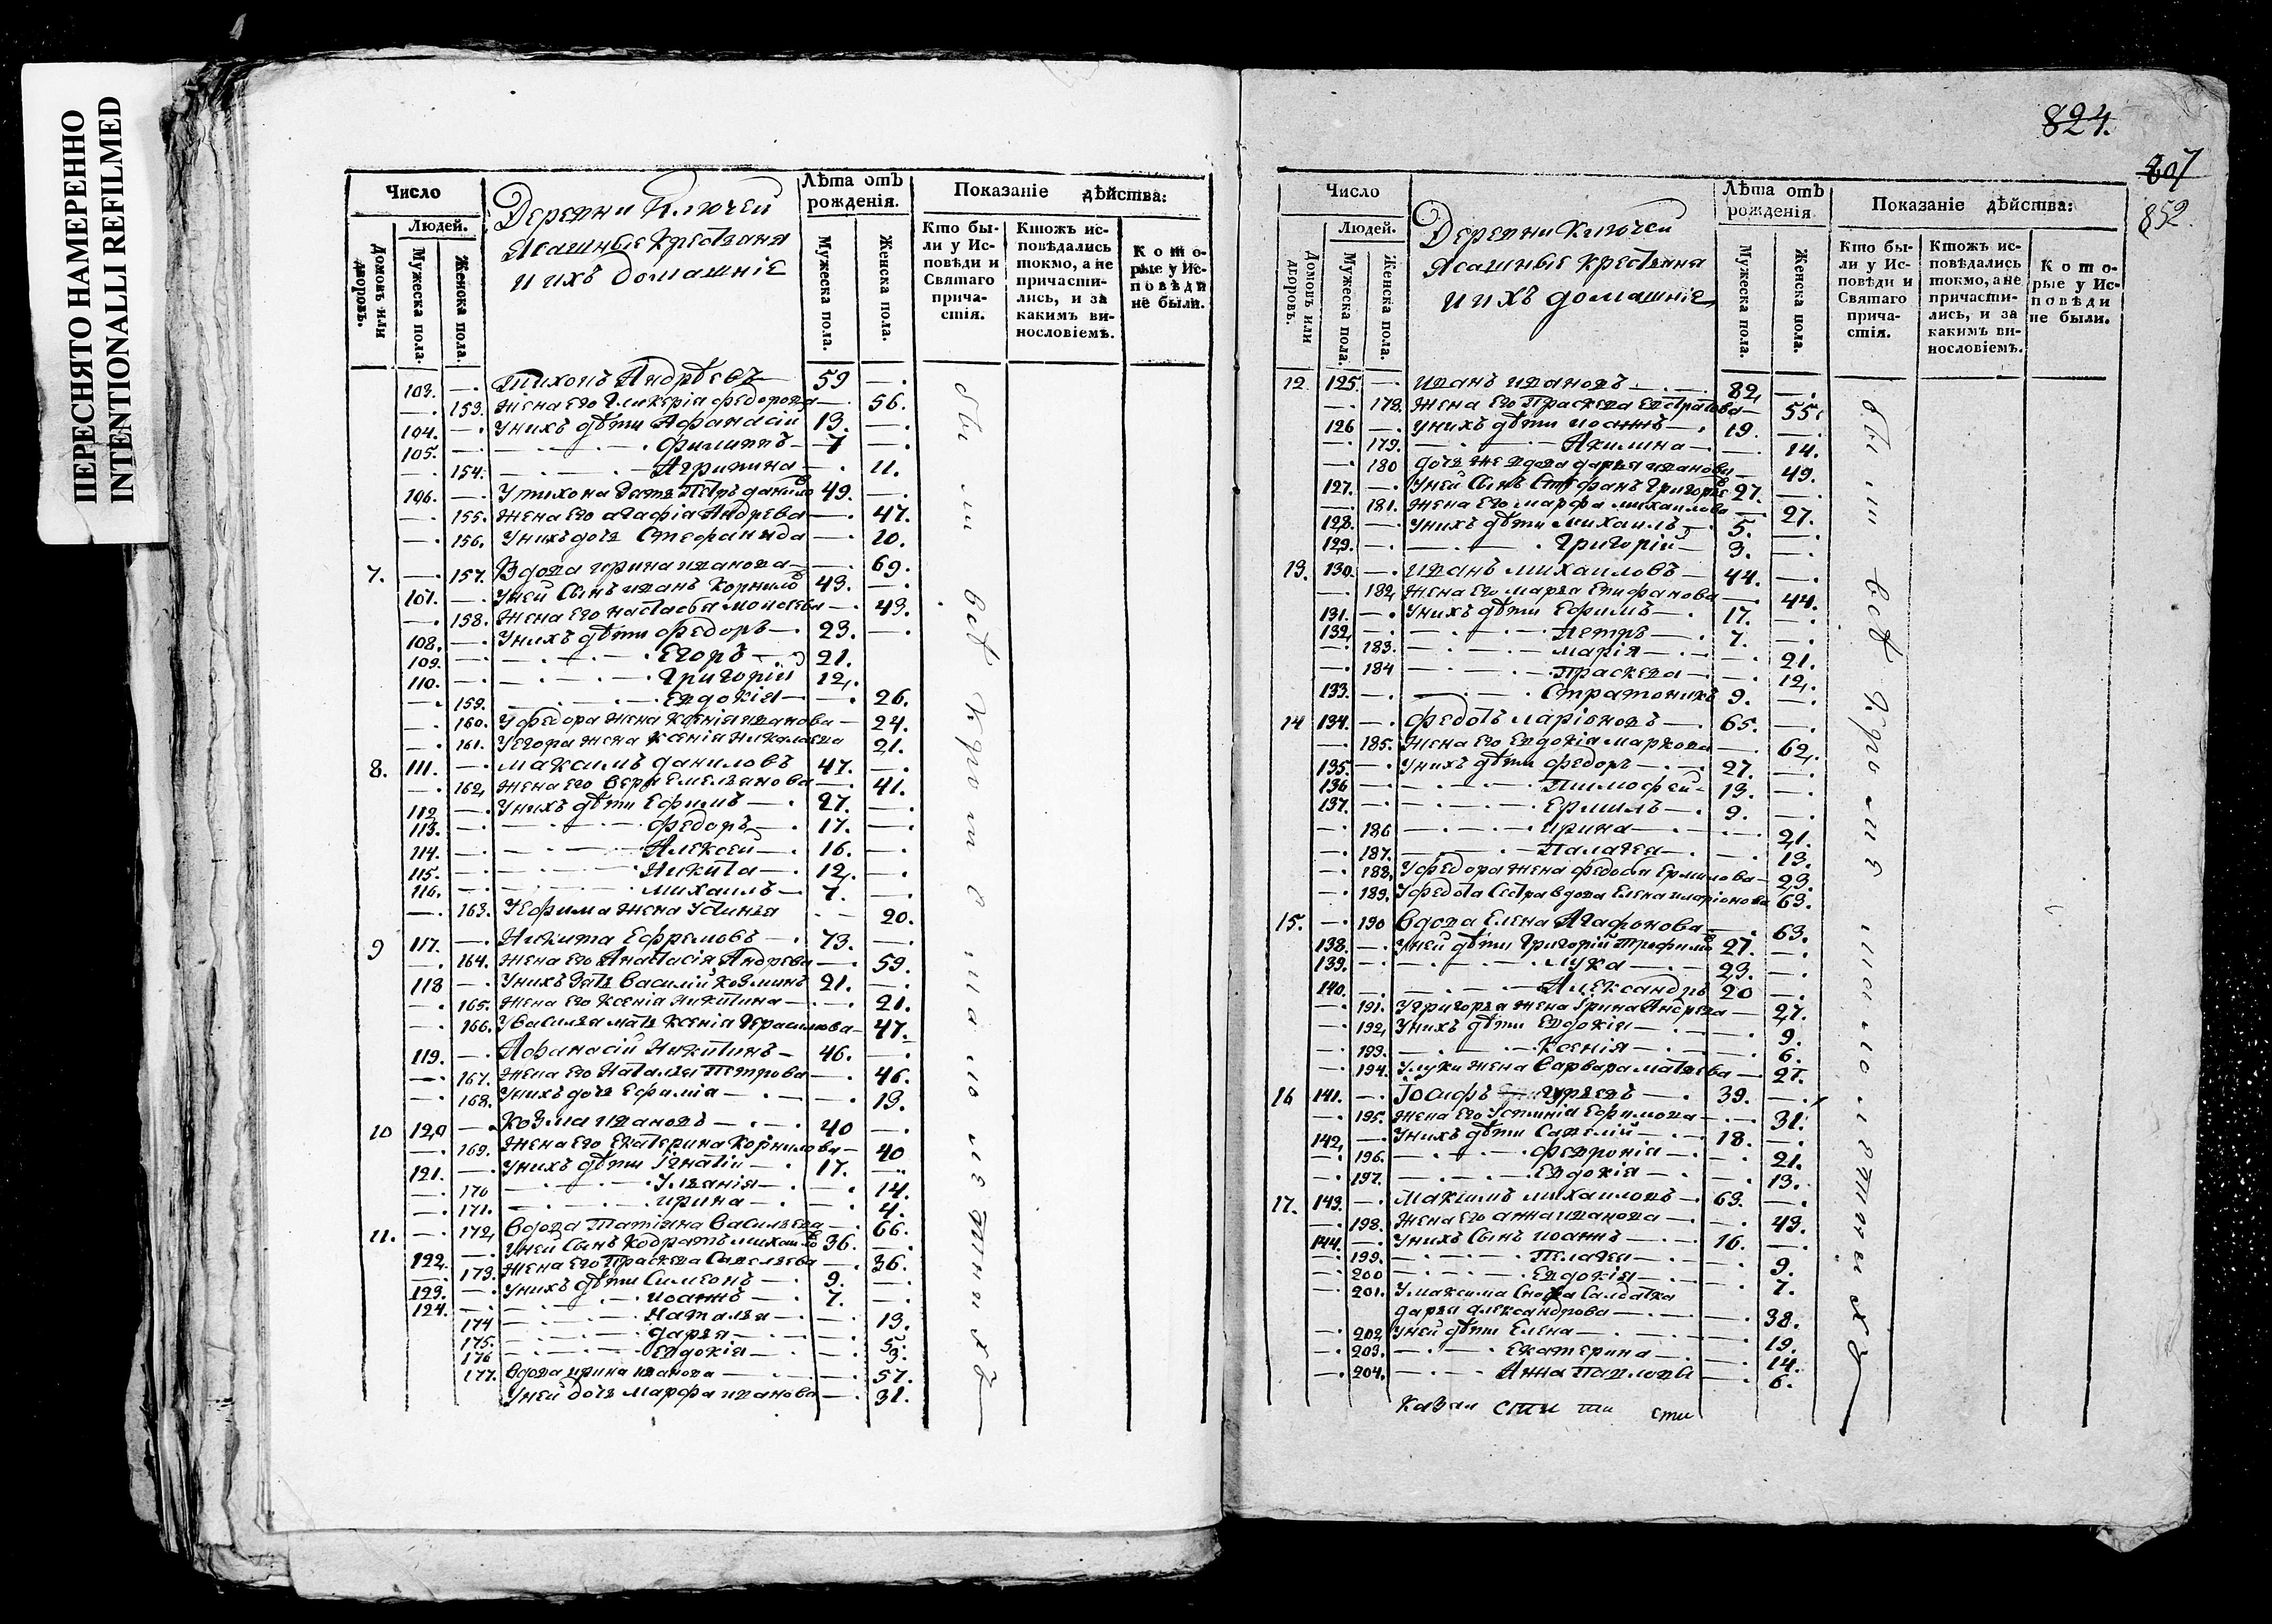 ПЕРЕСНЯТО НАМЕРЕННО
INTENTIONALLI REFILMED
Число
Людей.
Домовъ или дворовъ.
Мужеска пола.
Женска пола.
Деревни Ключей
Ясашные крестьяна
и ихъ домашніе
Лѣта отъ рожденія.
Мужеска пола.
Женска пола.
Показаніе дѣйства:
Кто бы-
ли у Ис-
повѣди и
Святаго
прича-
стія.
Ктожъ ис-
повѣдались
токмо, а не
причасти-
лись, и за
какимъ ви-
нословіемъ.
Кото-
рые у Ис-
повѣди
не были.
103. —. Тихонъ Андрѣевъ 59 —.
—. 153. Жена его Гликерія Федорова —. 56.
104. —. У нихъ дѣти Афанасій 13. —.
105. —. Филиппъ 7 —.
—. 154. Агрипина —. 11.
106. —. У тихона зать Петръ данило 49. —.
—. 155. Жена его агафія Андрева —. 47.
—. 156. У нихъ дочь Стефанида —. 20.
7. —. 157. Вдова ирина иванова —. 69.
107. —. У ней сынъ иванъ Корнило 43. —.
—. 158. Жена его настасья моисева —. 43.
108. —. У нихъ дѣти федоръ 23. —.
109. —. Егоръ 21.
110. —. Григорій 12.
—. 159. Евдокія —. 26.
—. 160. У федора жена Ксенія иванова — 24.
—. 161. У егора жена Ксенія Николаева 21.
8. 111. —. Максимъ даниловъ 47. —.
—. 162. Жена его Вера Емельянова —. 41.
112 —. У нихъ дѣти Ефимъ 27. —.
113. —. федоръ 17. —.
114. —. Алексей 16. —.
115. —. Никита 12. —.
116. —. михаилъ 7. —.
—. 163. У ефима жена Устинья —. 20.
9 117. —. Никита Ефремовъ 73. —.
—. 164. Жена его Анастасія Андрева —. 59.
118 —. У нихъ зать Василій козминъ 21. —.
—. 165. Жена его Ксенія Никитина —. 21.
—. 166. У василья мать Ксенія Герасимова — 47.
119. —. Афанасій Никитинъ 46. —.
—. 167. Жена его Наталья Петрова —. 46.
—. 168. У нихъ дочь Ефимія —. 13.
10 120 —. Козма ивановъ 40 —.
—. 169. Жена его Екатерина Корнилова — 40
121. —. У нихъ дѣти Ігнатіи 17. —.
—. 170 Ульянія —. 14.
—. 171. ирина —. 4.
11. —. 172. Вдова Татіана Васильева —. 66.
122. —. У ней сынъ Кодратъ михаило 36. —.
—. 173. Жена его Праскева Савельева —. 36.
123. —. У нихъ дѣти Симеонъ 9. —.
124. —. иоаннъ 7. —.
174 Наталья —. 13.
175. дарья —. 5.
176 Евдокія —. 3.
177. Вдова ирина иванова —. 57.
У ней дочь марфа иванова —. 31.
были всѣ кромѣ малолетнихъ
824.
807
852
Число
Людей.
Домовъ или дворовъ.
Мужеска пола.
Женска пола.
Деревни Ключей
Ясашные крестьяна
и ихъ домашніе
Лѣта отъ рожденія
Мужеска пола.
Женска пола.
Показаніе дѣйства:
Кто бы-
ли у Ис-
повѣди и
Святаго
прича-
стія.
Ктожъ ис-
повѣдались
токмо, а не
причасти-
лись, и за
какимъ ви-
нословіемъ.
Кото-
рые у Ис-
повѣди
не были.
12. 125. —. иванъ ивановъ 82. —.
—. 178. Жена его Праскева Евстратова — 55.
126 —. У нихъ дѣти иоаннъ 19. —.
—. 179. Акилина —. 14.
—. 180 дочь же вдова дарья иванова — 49.
127. —. У ней сынъ Стефанъ Григорье 27. —.
—. 181. Жена его марфа михаилова —. 27.
128. —. У нихъ дѣти михаилъ 5. —.
129. —. Григорій 3. —.
13. 130. —. иванъ михаиловъ 44. —.
—. 182. Жена его марья Епифанова —. 44.
131. —. У нихъ дѣти Ефимъ 17. —.
132. —. петръ 7. —.
—. 183. марія —. 21.
—. 184 Праскева —. 12.
133. —. Стратоникъ 9. —.
14 134. —. федотъ ларіоновъ 65. —.
—. 185. Жена его Евдокія маркова —. 62.
135. —. У нихъ дѣти федоръ 27. —.
136 —. Тимофей 13. —.
137. —. Ермилъ 9. —.
—. 186 ирина —. 21.
—. 187. Палагея —. 13.
—. 188. У федора жена федосья Ермилова — 23.
—. 189. У федота сестра вдова Елена иларіонова 63.
15. —. 190 Вдова Елена Агафонова —. 63.
138. —. У ней дѣти Григорій трофимо 27. —.
139. —. лука 23. —.
140. —. Александръ 20 —.
—. 191. У григорья жена Ірина Андрева — 27.
—. 192. У нихъ дѣти Евдокія —. 9.
—. 193. Ксенія —. 6.
—. 194. У луки жена Варвара матвева — 27.
16 141. —. Іоасифъ гурьевъ 39. —.
—. 195. Жена его Устинія Ефимова —. 31.
142. —. У нихъ дѣти Савелій 18. —.
—. 196. Февронія —. 21.
—. 197. Евдокія —. 13.
17. 143. —. Максимъ михаиловъ 63. —.
—. 198. Жена его анна иванова —. 43.
144. —. У нихъ сынъ иоаннъ 16. —.
—. 199. Пелагеи —. 9.
—. 200 Евдокія —. 7.
—. 201. У максима сноха салдатка
дарья александрова —. 38.
—. 202 У ней дѣти Елена —. 19.
—. 203. Екатерина —. 14.
—. 204. Анна Павловы —. 6.
были всѣ кромѣ малолетнихъ